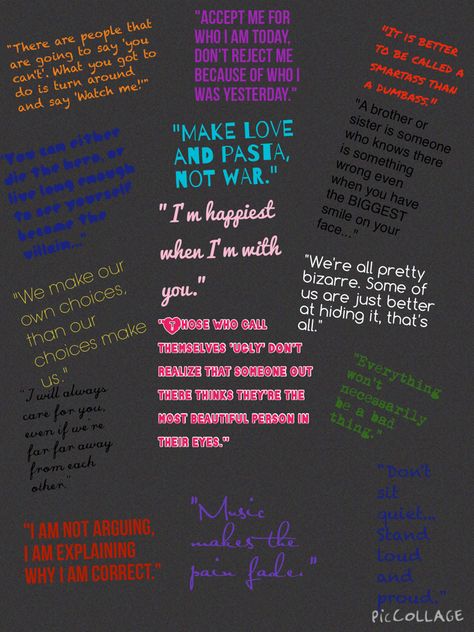 "There are people that
are going to say 'you
can't'. What you got to
do is turn around
and say 'Watch me!'"
"ACCEPT ME FOR
WHO I AM TODAY,
DON'T REJECT ME
BECAUSE OF WHO I
WAS YESTERDAY."
"IT IS BETTER
TO BE CALLED A
SMARTASS THAN
A DUMBASS."
"You can either
die the hero, or
live long enough
to see yourself
become the
villain..."
"MAKE LOVE
AND PASTA,
NOT WAR."
"A brother or
sister is someone
who knows there
is something
wrong even
when you have
the BIGGEST
smile on your
face..."
"I'm happiest
when I'm with
you."
"We make our
own choices,
than our
choices make
us."
"THOSE WHO CALL
THEMSELVES 'UGLY' DON'T
REALIZE THAT SOMEONE OUT
THERE THINKS THEY'RE THE
MOST BEAUTIFUL PERSON IN
THEIR EYES."
"We're all pretty
bizarre. Some of
us are just better
at hiding it, that's
all."
"I will always
care for you,
even if we're
far far away
from each
other."
"Everything
won't
necessarily
be a bad
thing."
"I AM NOT ARGUING,
I AM EXPLAINING
WHY I AM CORRECT."
"Music
makes the
pain fade."
"Don't
sit
quiet...
Stand
loud
and
proud."
PICCOLLAGE